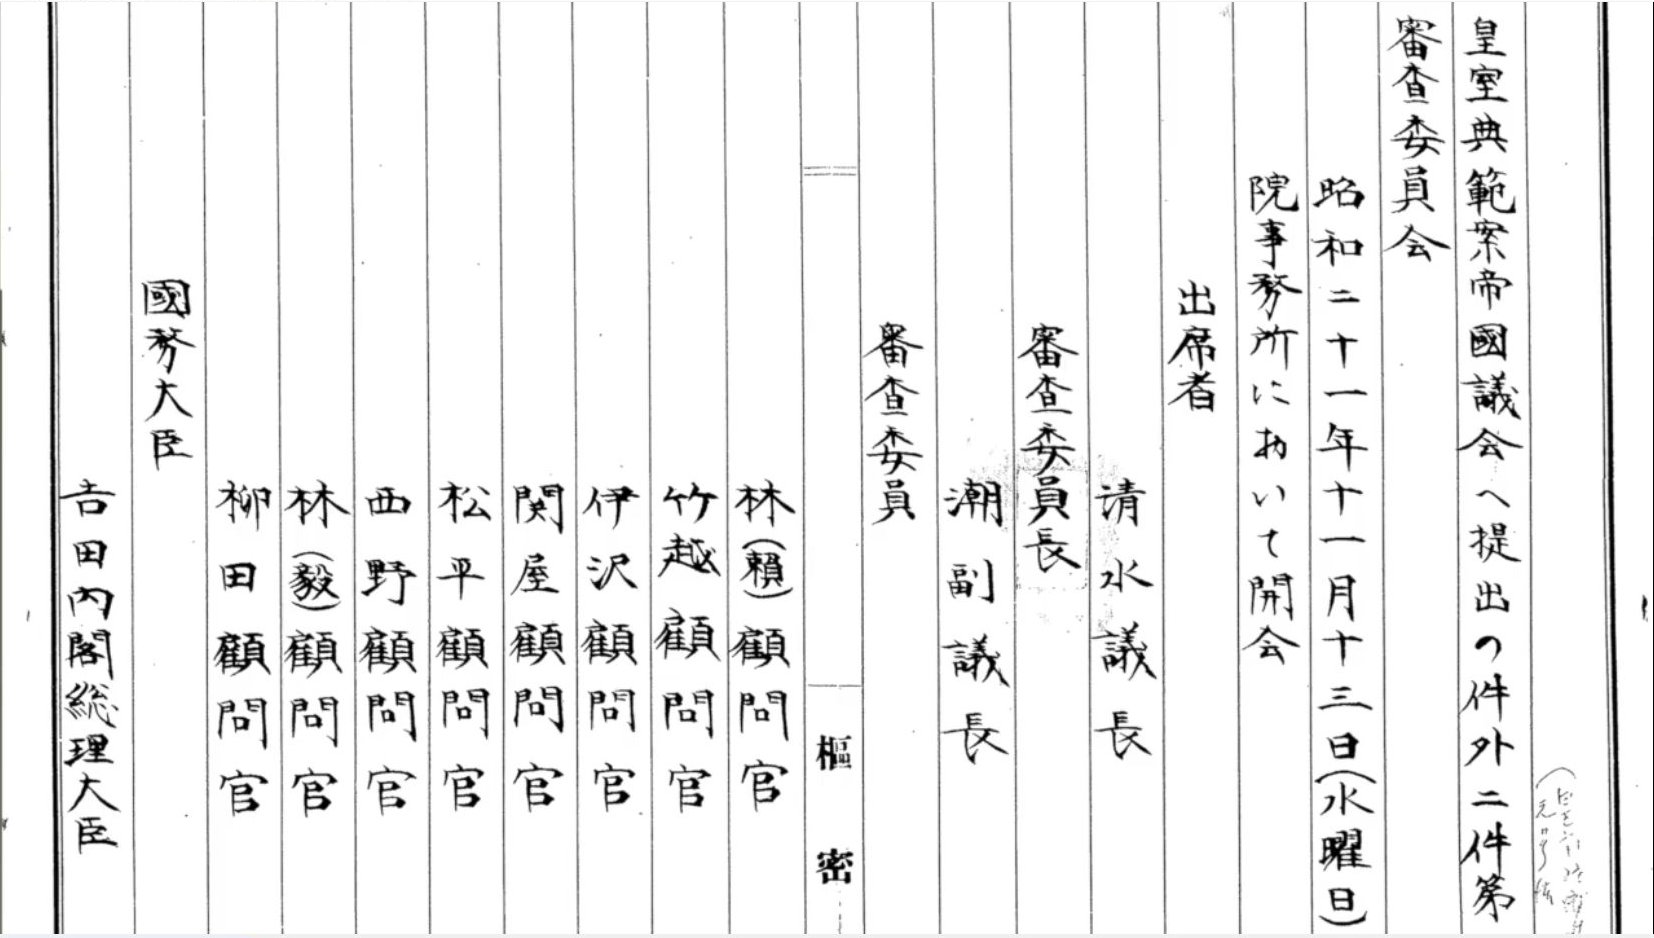 皇室典範案帝國議会へ提出の件外二件第
審査委員会
昭和二十一年十一月十三日(水曜日)
院事務所において開会
出席者
清水議長
審査委員長
潮副議長
審査委員
樞密
林(頼)顧問官
竹越顧問官
伊沢顧問官
関屋顧問官
松平顧問官
西野顧問官
林(毅)顧問官
柳田顧問官
國務大臣
吉田内閣総理大臣